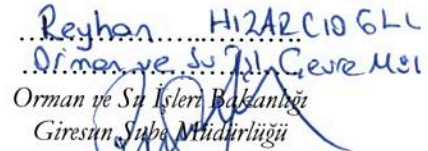 Reyhan HIZARCIOGLL
Orman ve Su İşl. Çevre Müh
Orman ve Su İşleri Bakanlığı
Giresun Şube Müdürlüğü